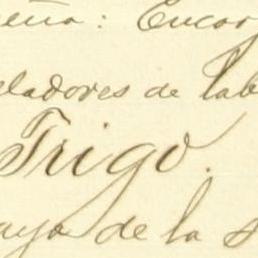 eña: Encar
eladores de lab
Trigo.
aya de la s